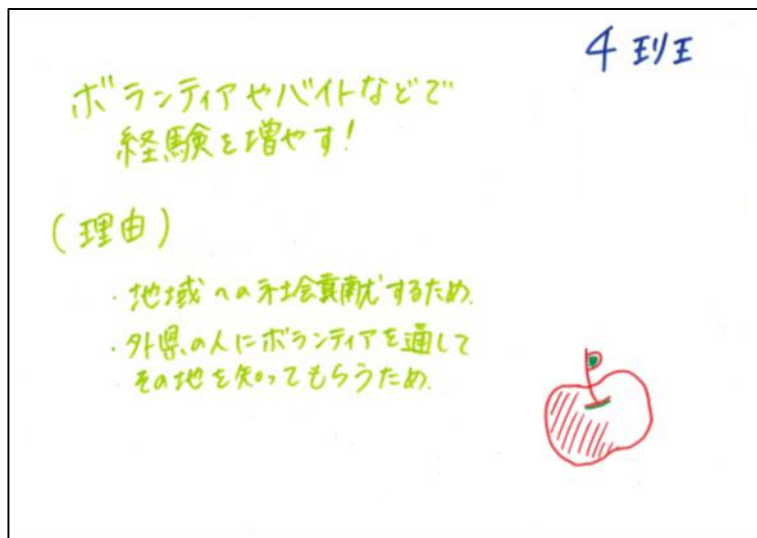 4班
ボランティアやバイトなどで
経験を増やす!
(理由)
・地域への社会貢献するため.
・外県の人にボランティアを通して
その地を知ってもらうため.